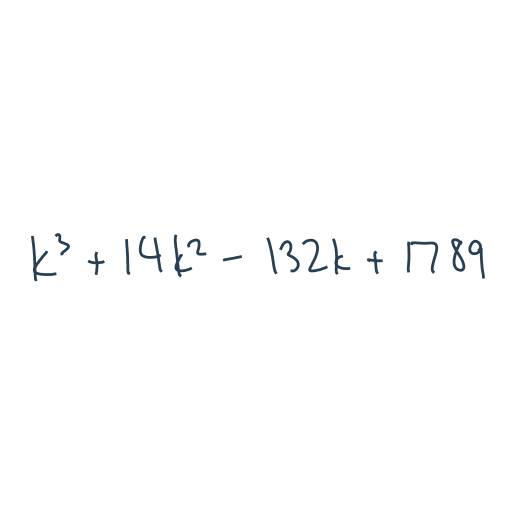 k³ + 14k² - 132k + 1789